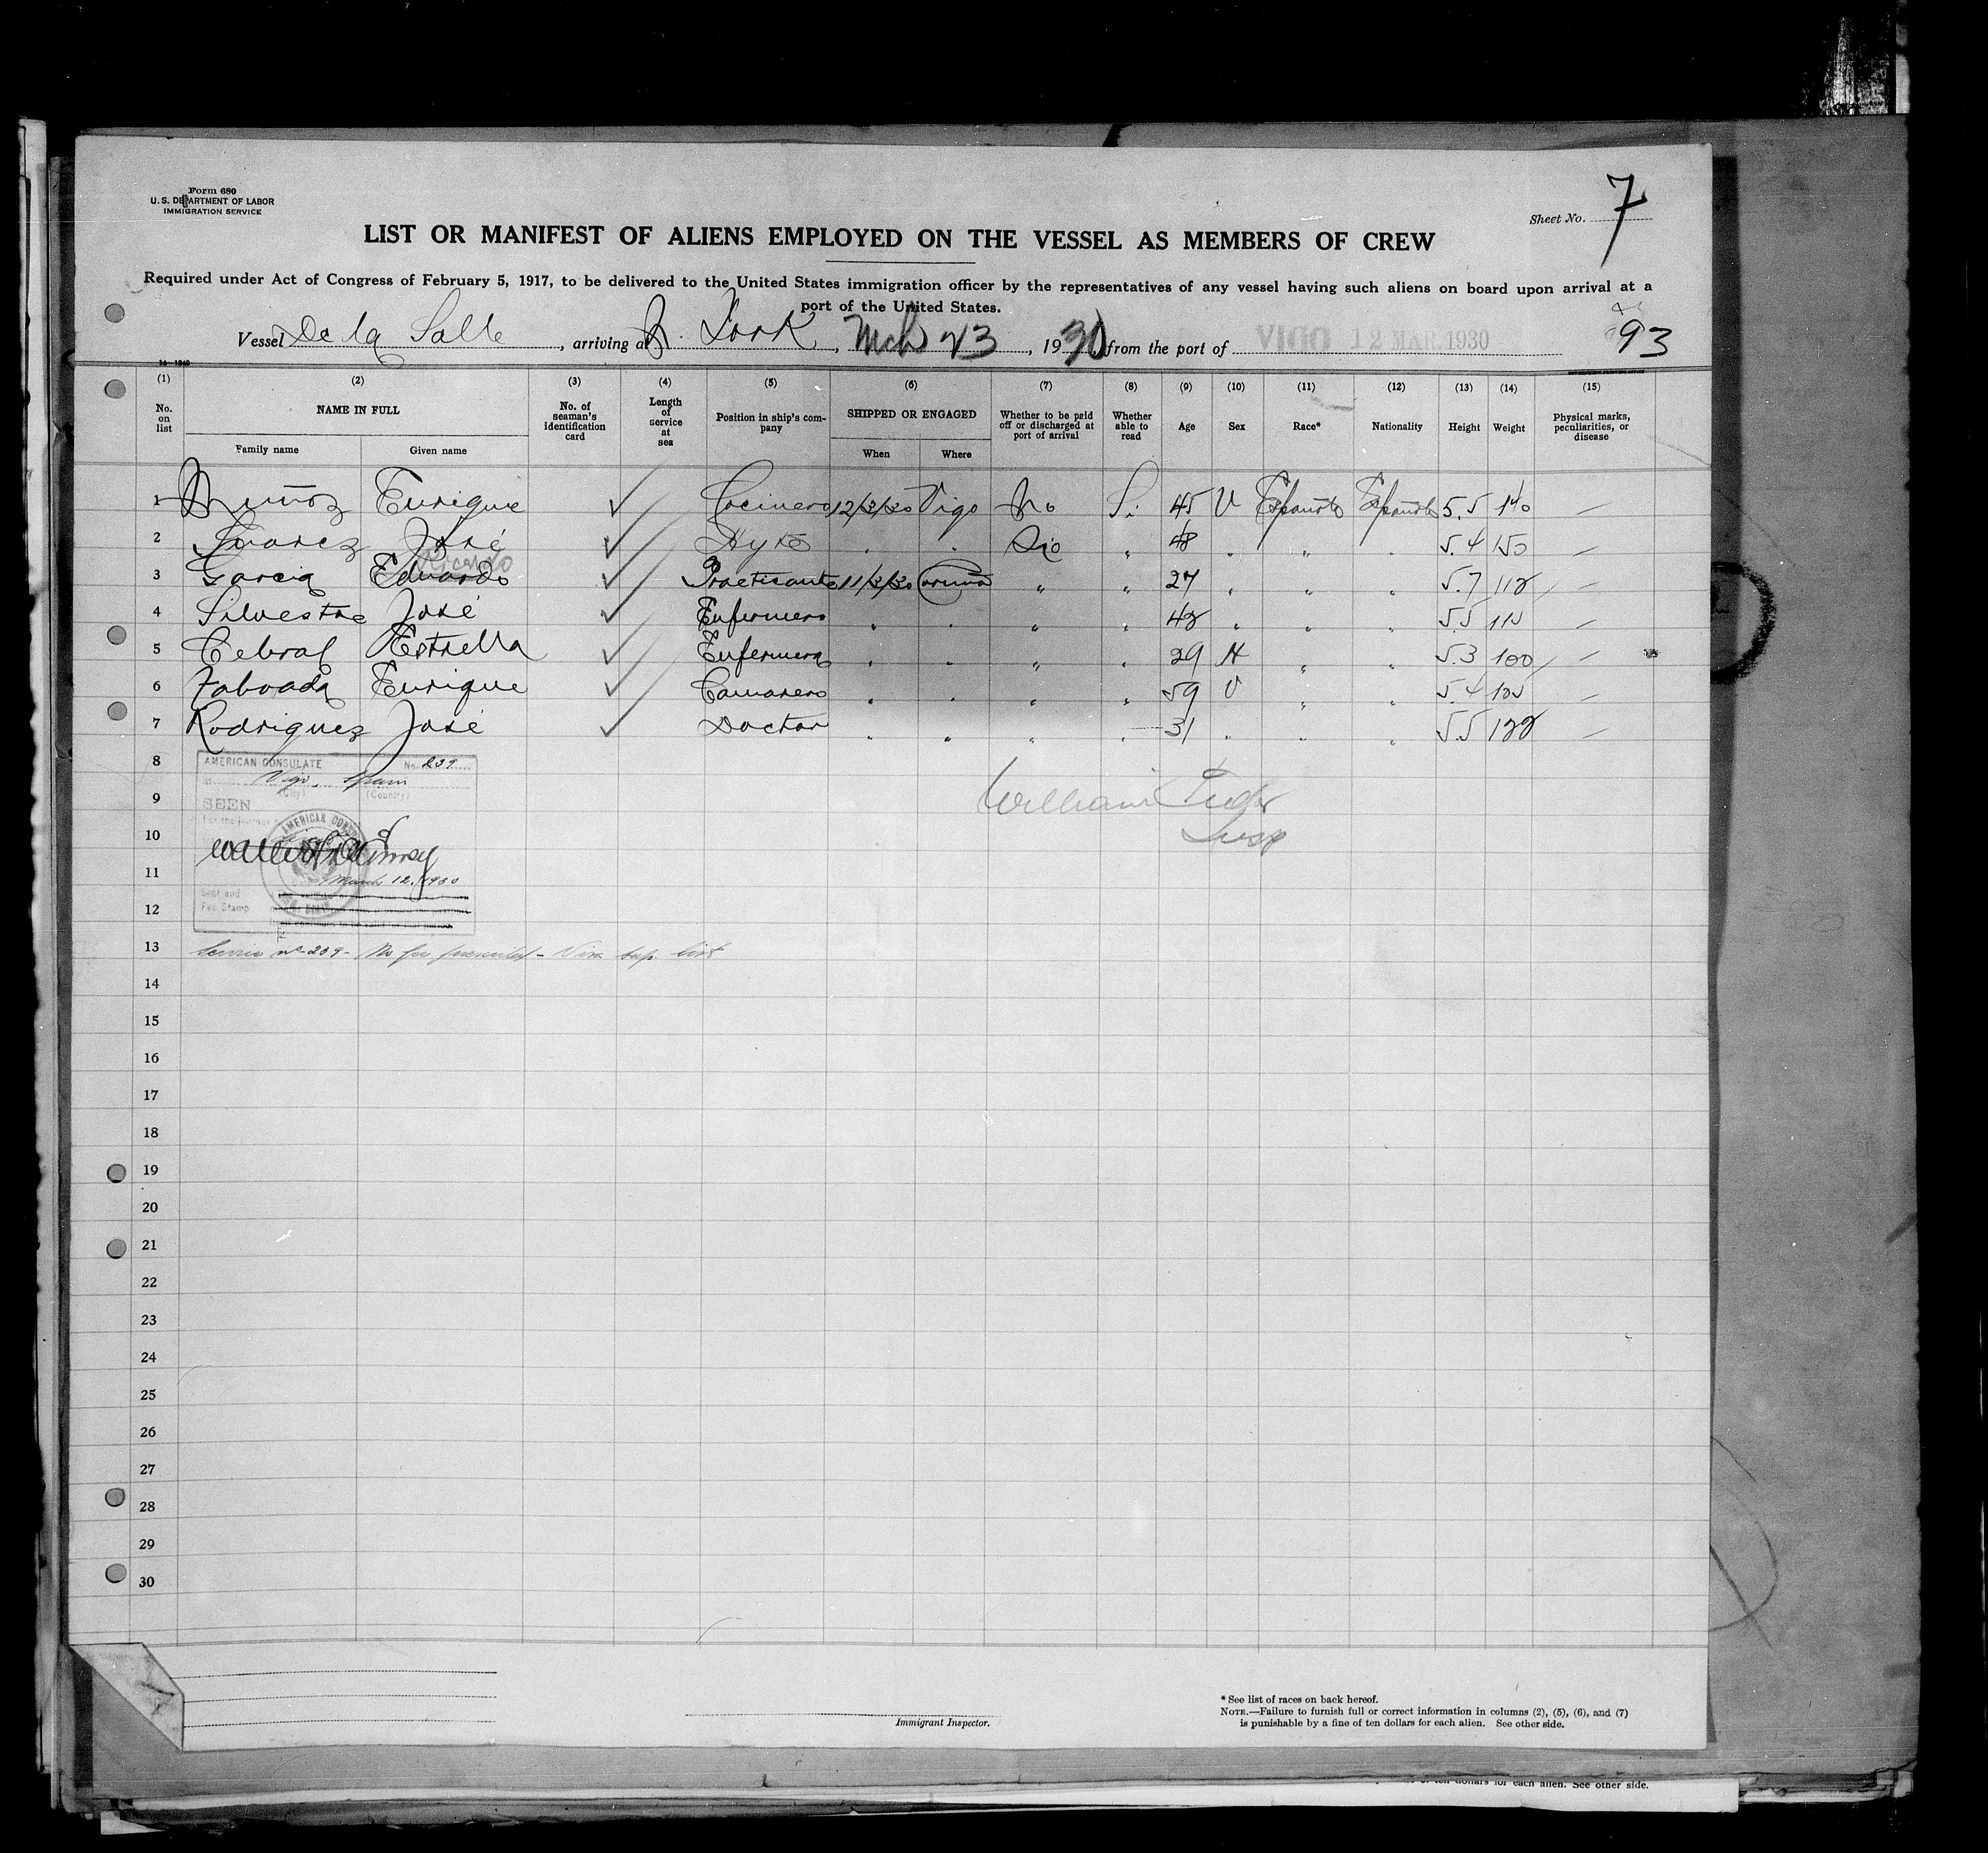 Form 680
U. S. DEPARTMENT OF LABOR
IMMIGRATION SERVICE
Sheet No. 7
LIST OR MANIFEST OF ALIENS EMPLOYED ON THE VESSEL AS MEMBERS OF CREW
Required under Act of Congress of February 5, 1917, to be delivered to the United States immigration officer by the representatives of any vessel having such aliens on board upon arrival at a
port of the United States.
Vessel De la Salle, arriving at N. York, Mch 23, 1930, from the port of VIGO 12 MAR. 1930
93
(1) (2) (3) (4) (5) (6) (7) (8) (9) (10) (11) (12) (13) (14) (15)
No. on list NAME IN FULL No. of seaman's identification card Length of service at sea Position in ship's company SHIPPED OR ENGAGED Whether to be paid off or discharged at port of arrival Whether able to read Age Sex Race* Nationality Height Weight Physical marks, peculiarities, or disease
Family name Given name When Where
1 Muñoz Enrique ✓ Cocinero 12/3/30 Vigo No Si 45 V Español Español 5.5 140 —
2 Suarez José ✓ " " " 48 " " " 5.4 150 —
Ricardo
3 Garcia Eduardo ✓ Practicante 11/3/30 Coruña " " 27 " " " 5.7 112 —
4 Silvestre José ✓ Enfermero " " " " 42 " " " 5.5 110 —
5 Cebral Estrella ✓ Enfermera " " " " 29 H " " 5.3 100 —
6 Taboada Enrique ✓ Camarero " " " " 59 V " " 5.4 105 —
7 Rodriguez José ✓ Doctor " " " " 31 " " " 5.5 122 —
8
AMERICAN CONSULATE No. 239
at Vigo, Spain
(City) (Country)
9
SEEN
For the journey
William
Insp
10
AMERICAN
11
March 12, 1930
Seal and
Fee Stamp
12
13 Service nº 239 - No fee prescribed - Visa sup. list
14
15
16
17
18
19
20
21
22
23
24
25
26
27
28
29
30
Immigrant Inspector.
* See list of races on back hereof.
NOTE.—Failure to furnish full or correct information in columns (2), (5), (6), and (7)
is punishable by a fine of ten dollars for each alien. See other side.
ten dollars for each alien. See other side.